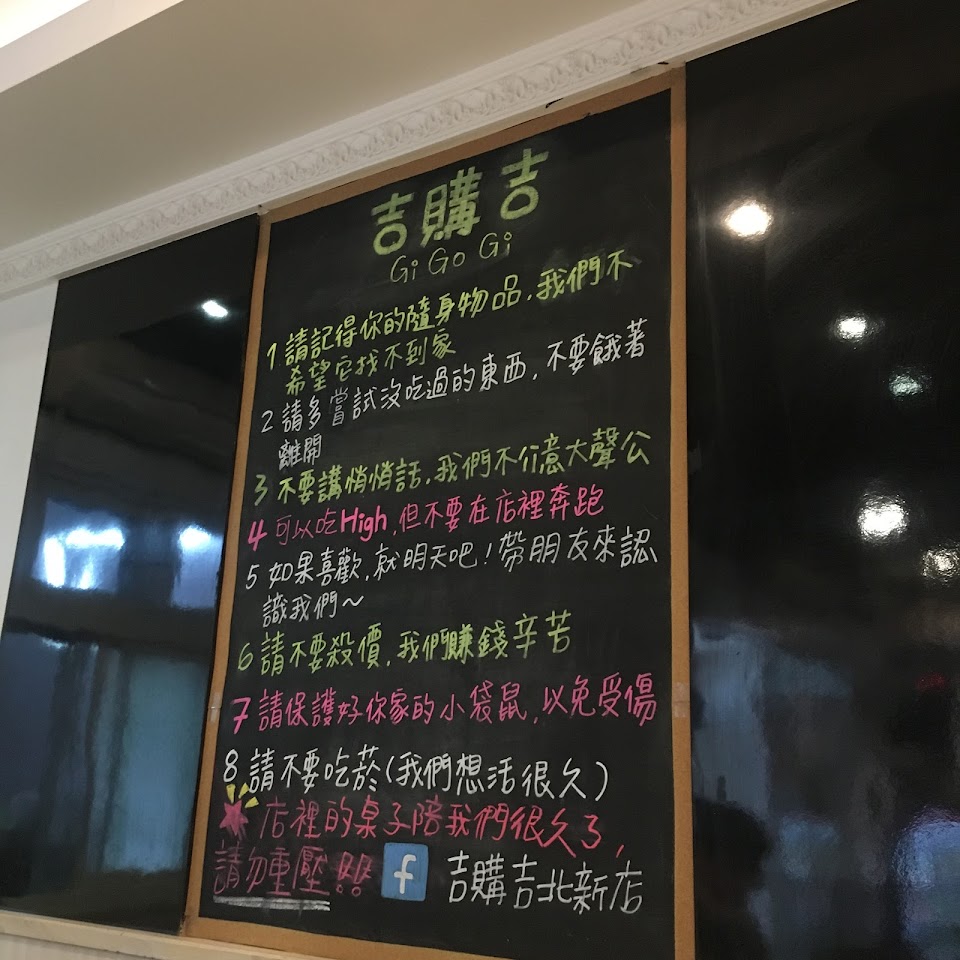 吉購吉
Gi Go Gi
1 請記得你的隨身物品,我們不
希望它找不到家
2 請多嘗試沒吃過的東西,不要餓著
離開
3 不要講悄悄話,我們不介意大聲公
4 可以吃High,但不要在店裡奔跑
5 如果喜歡,就明天吧!帶朋友來認
識我們~
6 請不要殺價,我們賺錢辛苦
7 請保護好你家的小袋鼠,以免受傷
8 請不要吃菸(我們想活很久)
店裡的桌子陪我們很久了,
請勿重壓!! f 吉購吉北新店